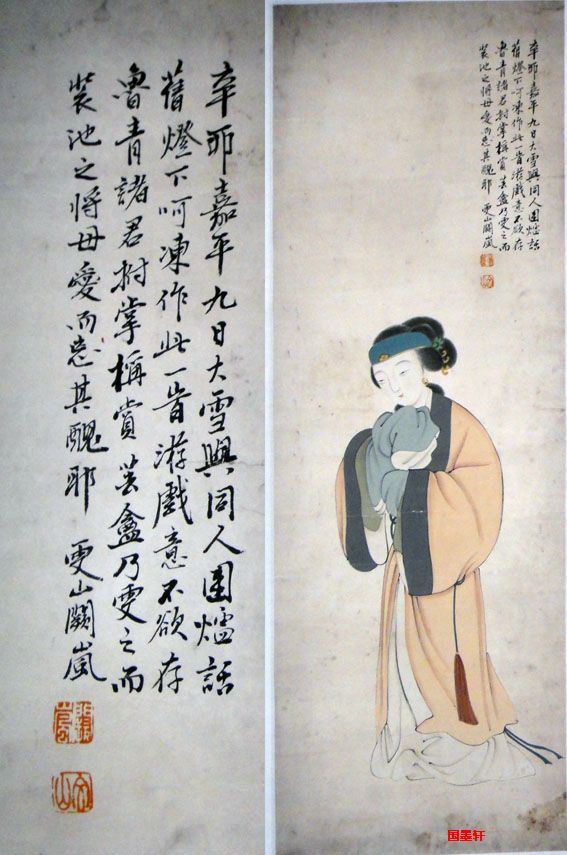 辛卯嘉平九日大雪與同人圍爐話
舊燈下呵凍作此一旹游戲意不欲存
魯青諸君拊掌稱賞芸盦乃受之而
裝池之將毋愛而忘其醜耶 雯山闕嵐
辛卯嘉平九日大雪與同人圍爐話
舊燈下呵凍作此一旹游戲意不欲存
魯青諸君拊掌稱賞芸盦乃受之而
裝池之將毋愛而忘其醜耶 雯山闕嵐
国墨轩